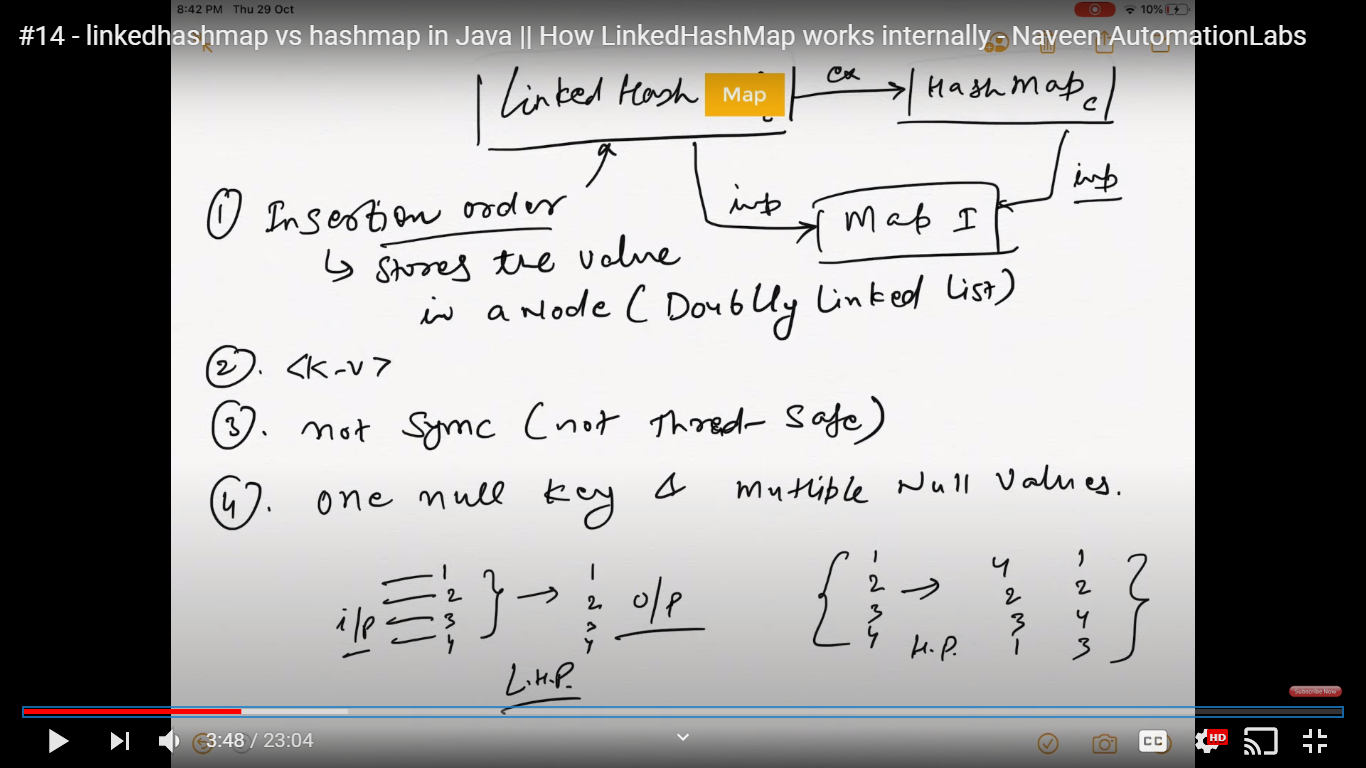 8:42 PM Thu 29 Oct 10%
#14 - linkedhashmap vs hashmap in Java || How LinkedHashMap works internally - Naveen AutomationLabs
Linked Hash Map c ex HashMap c
imp
① Insertion order imp Map I
↳ stores the value
in a Node (Doublly Linked List)
②. <K-V>
③. not Sync (not Thred-Safe)
④. one null key & mutliple Null values.
1 1 1 4 1
2 2 2 2 2
i/p 3 → 3 o/p 3 → 3 4
4 4 4 H.P. 1 3
L.H.P.
Subscribe Now
3:48 / 23:04 CC HD